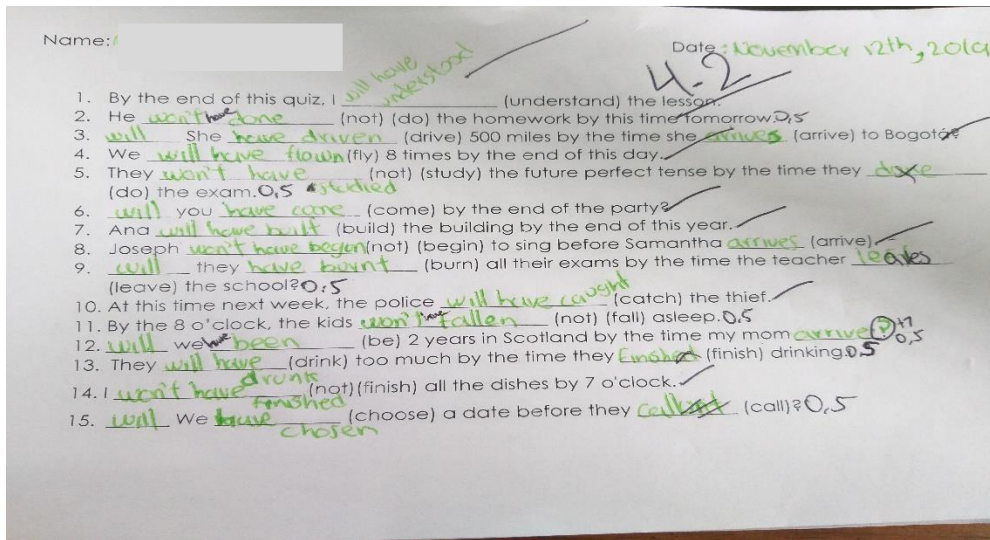 Name:
Date: November 12th, 2019
4.2
1. By the end of this quiz, I will have understood (understand) the lesson.
2. He won't have done (not) (do) the homework by this time tomorrow. 0,5
3. will She have driven (drive) 500 miles by the time she arrives (arrive) to Bogotá?
4. We will have flown (fly) 8 times by the end of this day.
5. They won't have studied (not) (study) the future perfect tense by the time they
(do) the exam. 0,5
6. will you have come (come) by the end of the party?
7. Ana will have built (build) the building by the end of this year.
8. Joseph won't have begun (not) (begin) to sing before Samantha arrives (arrive).
9. will they have burnt (burn) all their exams by the time the teacher leaves
(leave) the school? 0.5
10. At this time next week, the police will have caught (catch) the thief.
11. By the 8 o'clock, the kids won't have fallen (not) (fall) asleep. 0.5
12. will we have been (be) 2 years in Scotland by the time my mom arrive ? 0,5
13. They will have drunk (drink) too much by the time they finished (finish) drinking. 0.5
14. I won't have finished (not) (finish) all the dishes by 7 o'clock.
15. will We have chosen (choose) a date before they call (call)? 0.5